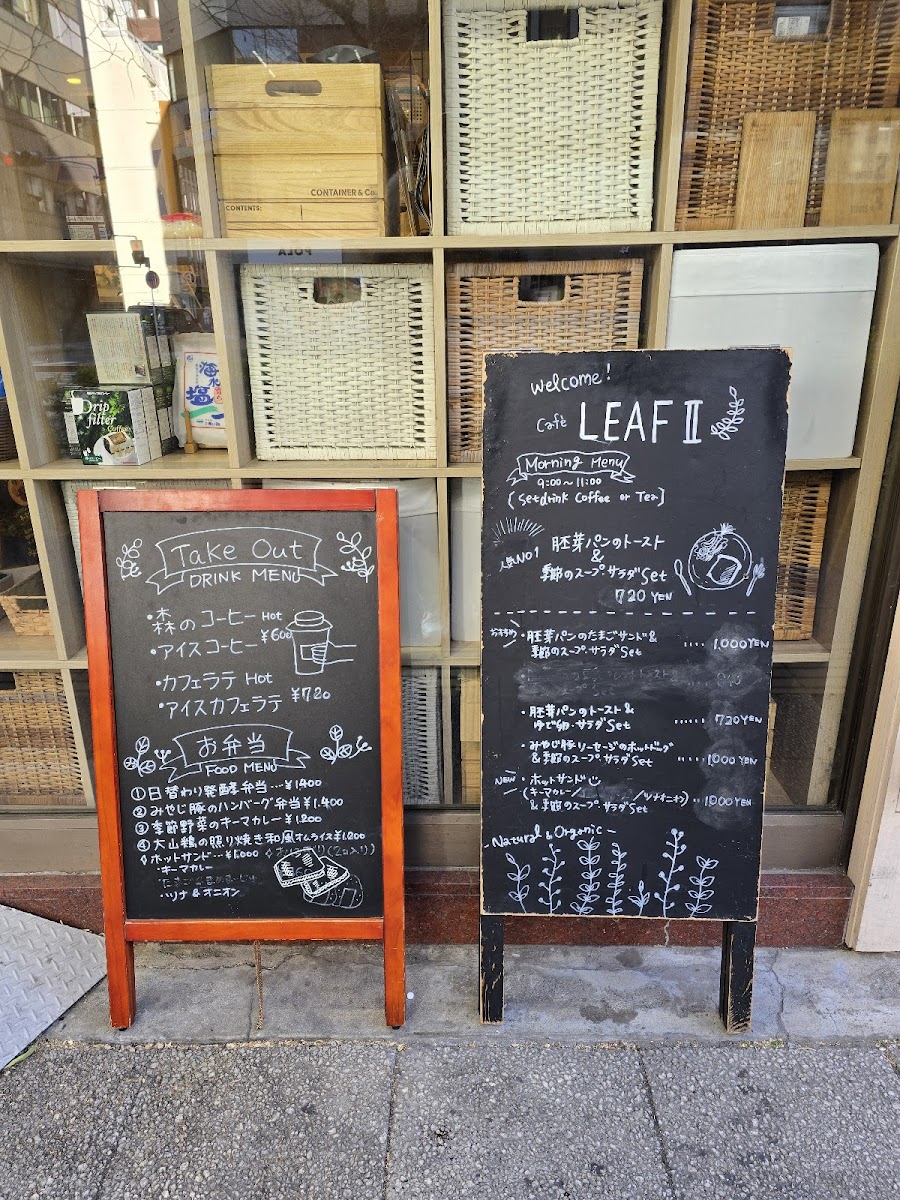 CONTAINER & Co.
CONTENTS:
Drip
filter
Coffee
海水
塩
Take Out
DRINK MENU
・森のコーヒー Hot
・アイスコーヒー ¥600
・カフェラテ Hot
・アイスカフェラテ ¥720
お弁当
FOOD MENU
①日替わり発酵弁当…¥1,400
②みやじ豚のハンバーグ弁当¥1,400
③季節野菜のキーマカレー¥1,200
④大山鶏の照り焼き和風オムライス¥1,200
ホットサンド…¥1,000
(2コ入り)
・キーマカレー
・ツナ&オニオン
Welcome!
Café LEAF II
Morning Menu
9:00~11:00
(Setdrink Coffee or Tea)
人気NO1
胚芽パンのトースト
&
季節のスープ・サラダSet
720 YEN
おすすめ
・胚芽パンのたまごサンド&
季節のスープ・サラダSet ....1,000YEN
・胚芽パンのトースト&
ゆで卵・サラダSet ......720YEN
・みやじ豚ソーセージのホットドッグ
&季節のスープ・サラダSet ......1,000YEN
NEW
・ホットサンド
(キーマカレー/ /ツナオニオン)
&季節のスープ・サラダSet ..1,000YEN
- Natural & Organic -